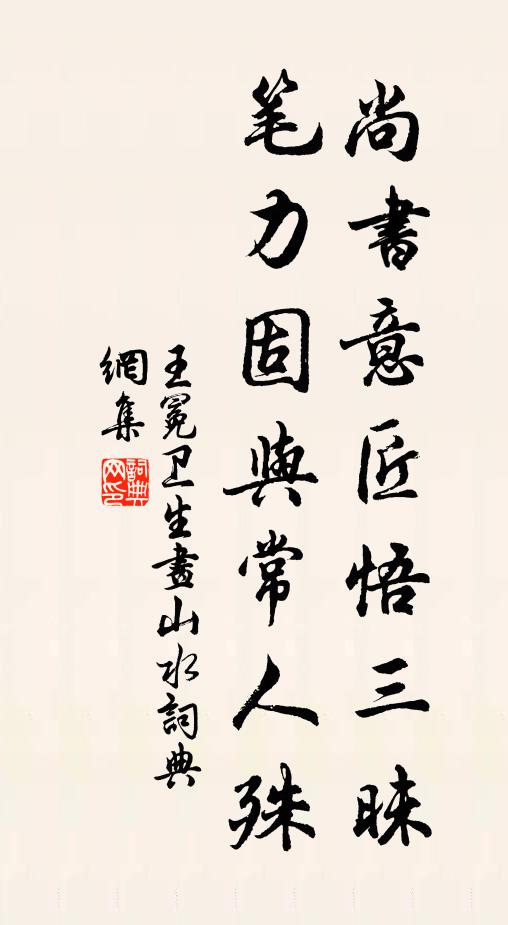 尚書意匠悟三昧
笔力固與常人殊
王冕卫生畫山水詞典
網集
詞典
网印